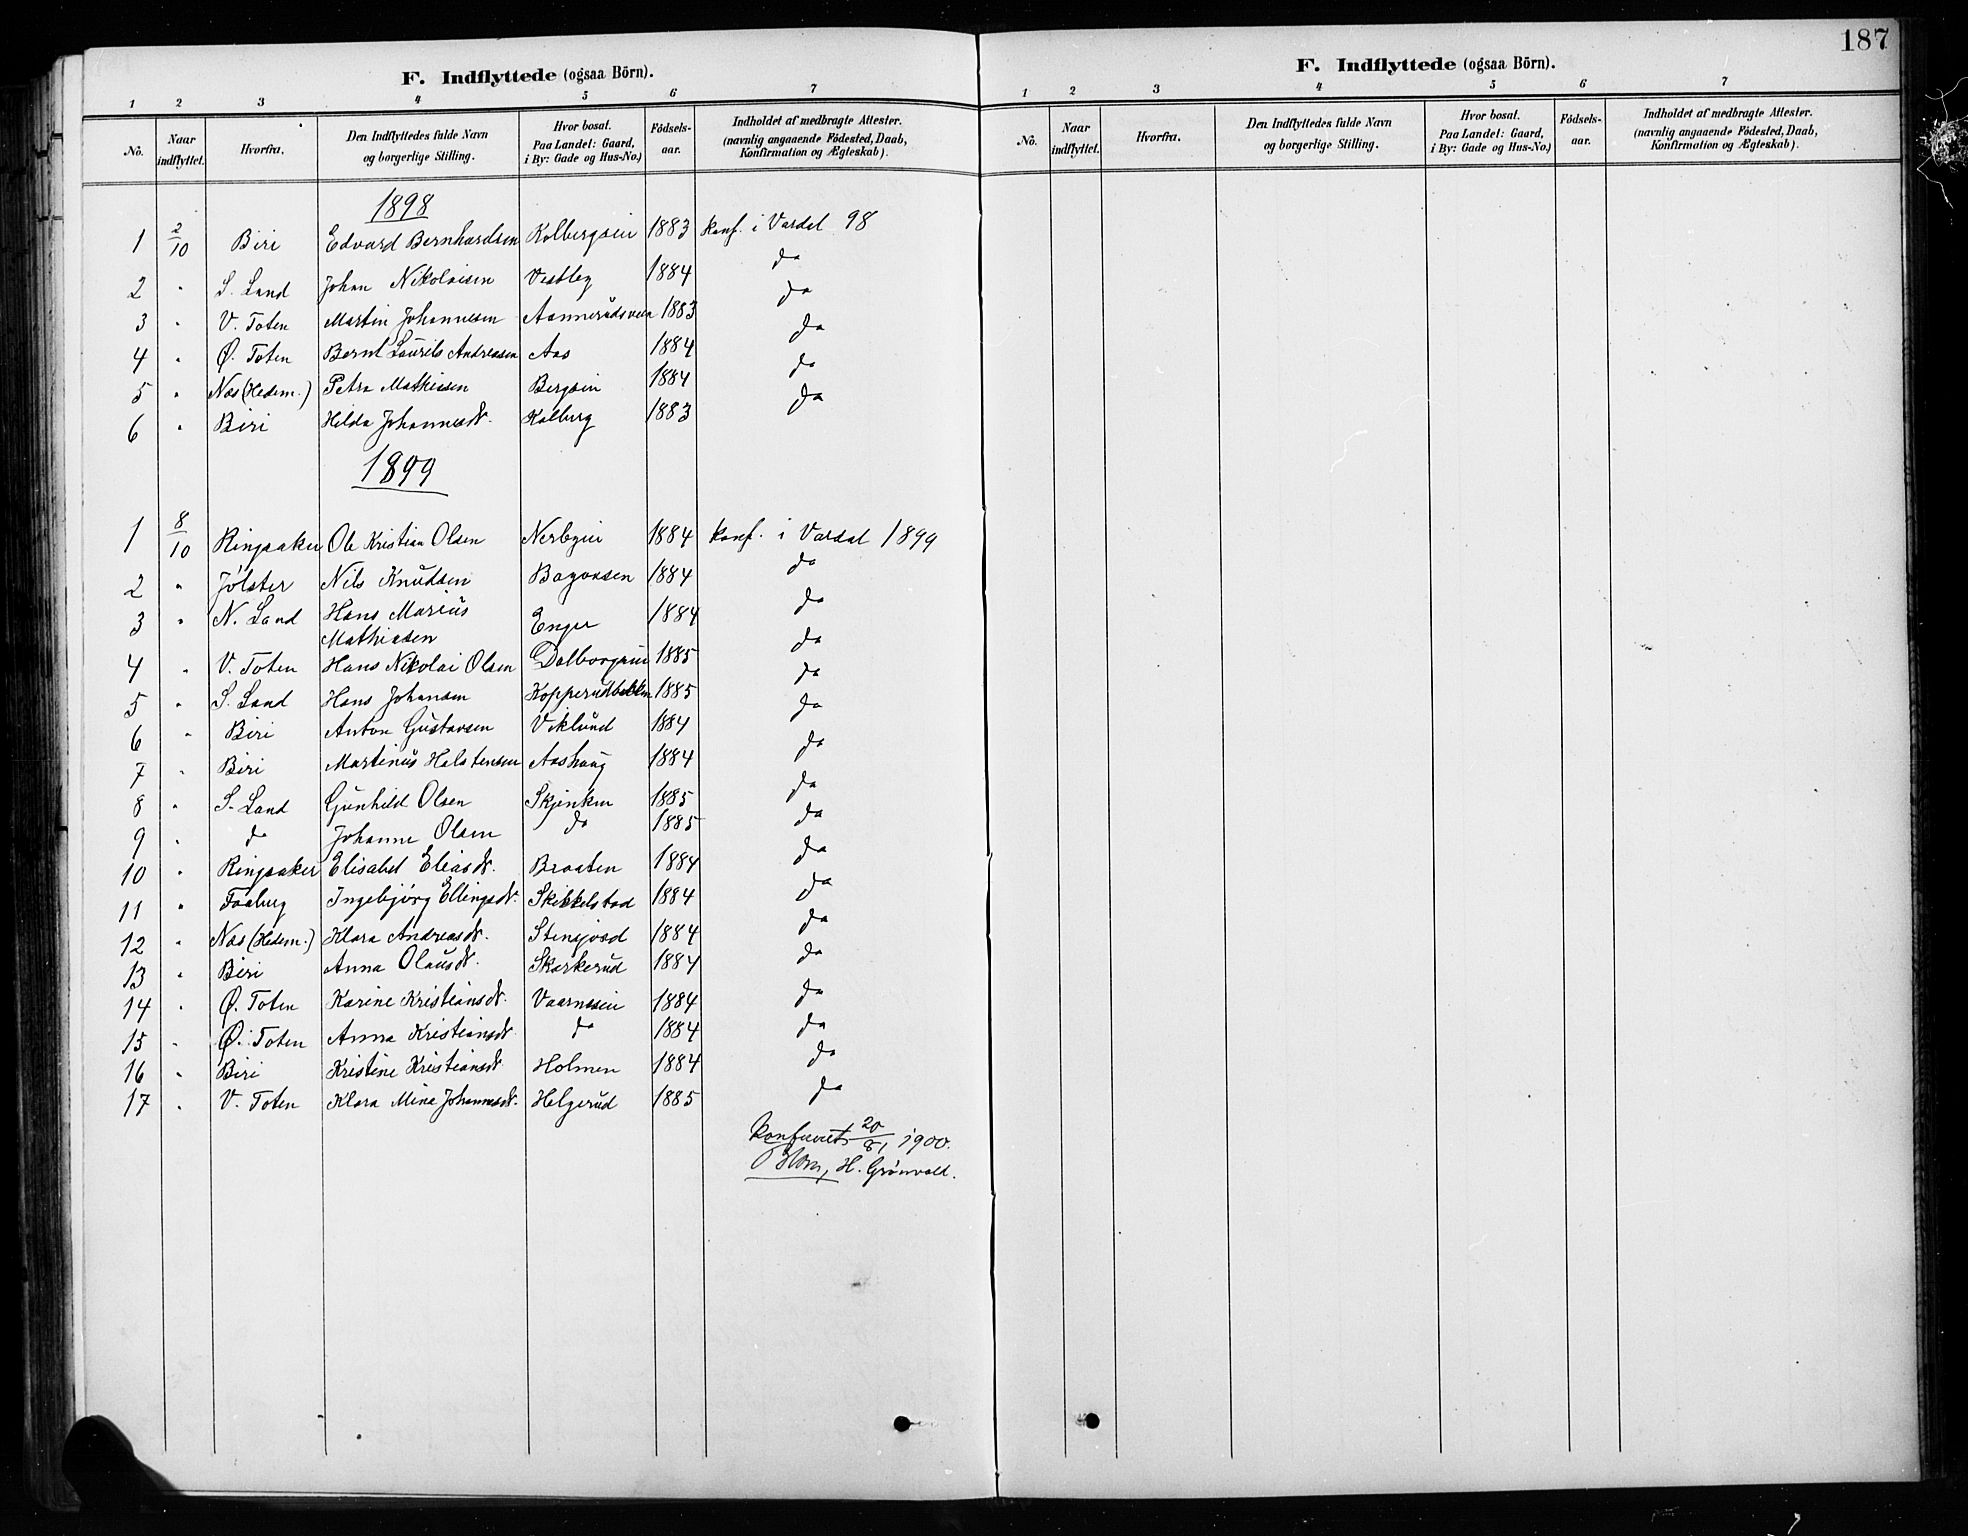 187
F. Indflyttede (ogsaa Börn).
1 2 3 4 5 6 7
No. Naar indflyttet. Hvorfra. Den Indflyttedes fulde Navn og borgerlige Stilling. Hvor bosat. Paa Landet: Gaard, i By: Gade og Hus-No.) Fódsels-aar. Indholdet af medbragte Attester. (navnlig angaaende Fódested, Daab, Konfirmation og Ægteskab).
1898
1 2/10 Biri Edvard Bernhardsen Kolbergseie 1883 konf. i Vardal 98
2 " S. Land Johan Nikolaisen Vestby 1884 do
3 " V. Toten Martin Johannesen Aannerudsveen 1883 do
4 " Ø. Toten Bernt Laurits Andreasen Aas 1884 do
5 " Næs (Hedem.) Petra Mathisen Bergseie 1884 do
6 " Biri Hilda Johannesdr. Kolberg 1883 do
1899
1 8/10 Ringsaker Ole Kristian Olsen Nerbyeie 1884 konf. i Vardal 1899
2 " Jølster Nils Knudsen Bagaasen 1884 do
3 " N. Land Hans Marius Mathiasen Enger 1884 do
4 " V. Toten Hans Nikolai Olsen Dalborgseie 1885 do
5 " S. Land Hans Johansen Kopperudbakken 1885 do
6 " Biri Anton Gustavsen Viklund 1884 do
7 " Biri Martinus Halstensen Aashaug 1884 do
8 " S. Land Gunhild Olsen Skjenken 1885 do
9 " do Johanne Olsen do 1885 do
10 " Ringsaker Elisabet Eliasdr. Braaten 1884 do
11 " Faaberg Ingebjørg Ellingsdr. Skikkelstad 1884 do
12 " Næs (Hedem.) Klara Andreasdr. Stensjord 1884 do
13 " Biri Anna Olausdr. Skarkerud 1884 do
14 " Ø. Toten Karine Kristiansdr. Vaarneseie 1884 do
15 " Ø. Toten Anna Kristiansdr. do 1884 do
16 " Biri Kristine Kristiansdr. Holmen 1884 do
17 " V. Toten Klara Mine Johannesdr. Helgerud 1885 do
20/8 1900.
H. Grönvold.
F. Indflyttede (ogsaa Börn).
1 2 3 4 5 6 7
No. Naar indflyttet. Hvorfra. Den Indflyttedes fulde Navn og borgerlige Stilling. Hvor bosat. Paa Landet: Gaard, i By: Gade og Hus-No.) Fódsels-aar. Indholdet af medbragte Attester. (navnlig angaaende Fódested, Daab, Konfirmation og Ægteskab).